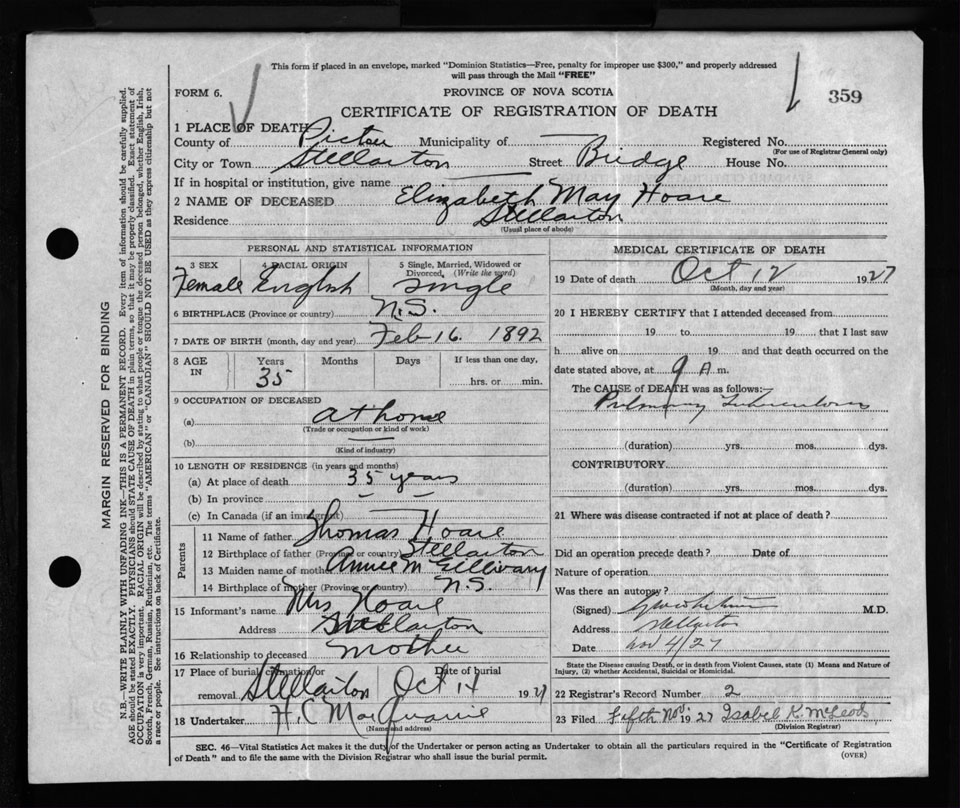 This form if placed in an envelope, marked "Dominion Statistics—Free, penalty for improper use $300," and properly addressed
will pass through the Mail "FREE"
FORM 6.
PROVINCE OF NOVA SCOTIA
359
CERTIFICATE OF REGISTRATION OF DEATH
1 PLACE OF DEATH
County of Pictou Municipality of — Registered No.
(For use of Registrar General only)
City or Town Stellarton Street Bridge House No.
If in hospital or institution, give name —
2 NAME OF DECEASED Elizabeth May Hoare
Residence Stellarton
(Usual place of abode)
PERSONAL AND STATISTICAL INFORMATION
3 SEX 4 RACIAL ORIGIN 5 Single, Married, Widowed or Divorced, (Write the word)
Female English Single
6 BIRTHPLACE (Province or country) N.S.
7 DATE OF BIRTH (month, day and year) Feb 16. 1892
8 AGE IN Years Months Days If less than one day,
35 hrs. or min.
9 OCCUPATION OF DECEASED
(a) at home
(Trade or occupation or kind of work)
(b) —
(Kind of industry)
10 LENGTH OF RESIDENCE (in years and months)
(a) At place of death 35 years
(b) In province — —
(c) In Canada (if an immigrant) —
Parents
11 Name of father Thomas Hoare
12 Birthplace of father (Province or country) Stellarton
13 Maiden name of mother Annie
14 Birthplace of mother (Province or country) N.S.
15 Informant's name Mrs Hoare
Address Stellarton
16 Relationship to deceased mother
17 Place of burial, cremation or removal Stellarton Date of burial Oct 14 1927
18 Undertaker H.C MacQuarrie
(Name and address)
MEDICAL CERTIFICATE OF DEATH
19 Date of death Oct 12 1927
(Month, day and year)
20 I HEREBY CERTIFY that I attended deceased from
19 to 19 that I last saw
h alive on 19 and that death occurred on the
date stated above, at 9 A m.
The CAUSE of DEATH was as follows:
Pulmonary Tuberculosis
(duration) yrs. mos. dys.
CONTRIBUTORY
(duration) yrs. mos. dys.
21 Where was disease contracted if not at place of death?
Did an operation precede death? Date of
Nature of operation
Was there an autopsy?
(Signed) M.D.
Address Stellarton
Date Nov 4/27
State the Disease causing Death, or in death from Violent Causes, state (1) Means and Nature of
Injury, (2) whether Accidental, Suicidal or Homicidal.
22 Registrar's Record Number 2
23 Filed Fifth Nov. 1927 Isabel K. McLeod
(Division Registrar)
SEC. 46—Vital Statistics Act makes it the duty of the Undertaker or person acting as Undertaker to obtain all the particulars required in the "Certificate of Registration
of Death" and to file the same with the Division Registrar who shall issue the burial permit.
(OVER)
MARGIN RESERVED FOR BINDING
N.B.—WRITE PLAINLY WITH UNFADING INK—THIS IS A PERMANENT RECORD. Every item of information should be carefully supplied.
AGE should be stated EXACTLY. PHYSICIANS should STATE CAUSE OF DEATH in plain terms, so that it may be properly classified. Exact statement of
OCCUPATION is very important. RACIAL ORIGIN will be described by stating to what people or tongue the deceased person belonged, whether English, Irish,
Scotch, French, German, Russian, Ruthenian, etc. The terms "AMERICAN" or "CANADIAN" SHOULD NOT BE USED as they express citizenship but not
a race or people. See instructions on back of Certificate.